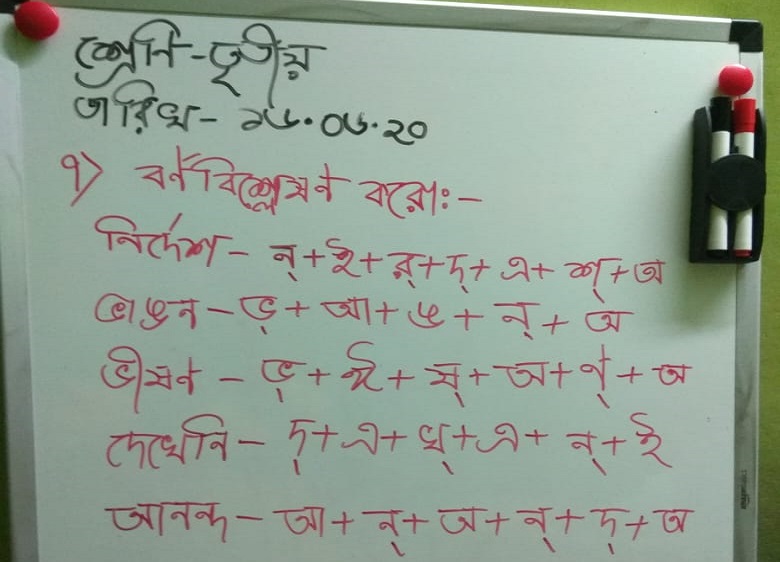 শ্রেনি-তৃতীয়
তারিখ- ১৬.০৬.২০
১) বর্ণবিশ্লেষণ করো:-
নির্দেশ- ন্+ই+র্+দ্+এ+শ্+অ
ভাঙন- ভ্+আ+ঙ+ন্+অ
ভীষণ - ভ্+ঈ+ষ্+অ+ণ্+অ
দেখেনি- দ্+এ+খ্+এ+ন্+ই
আনন্দ- আ+ন্+অ+ন্+দ্+অ